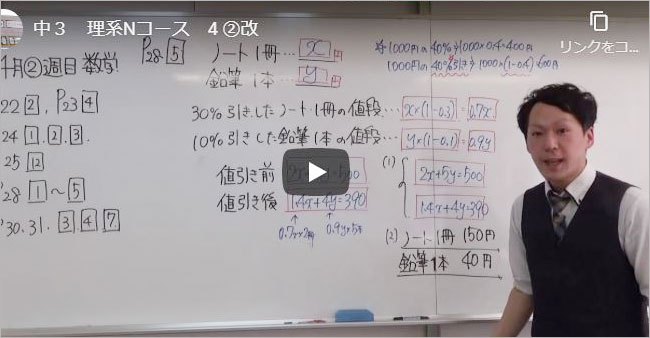 中3 理系Nコース 4②改
リンクをコ...
4月②週目 数学
22 [2], P23 [4]
24 [1].[2].[3].
25 [12]
P28 [1]～[5]
P30.31. [3] [4] [7]
P28 [5]
ノート1冊… x 円
鉛筆1本… y 円
30%引きしたノート1冊の値段… x×(1-0.3)=0.7x
10%引きした鉛筆1本の値段… y×(1-0.1)=0.9y
値引き前 =500
値引き後 1.4x+4y=390
0.7x×2冊
0.9y×5本
1000円の40%⇒1000×0.4=400円
1000円の40%引き⇒1000×(1-0.4)=600円
(1)
2x+5y=500
1.4x+4y=390
(2) ノート1冊 150円
鉛筆1本 40円